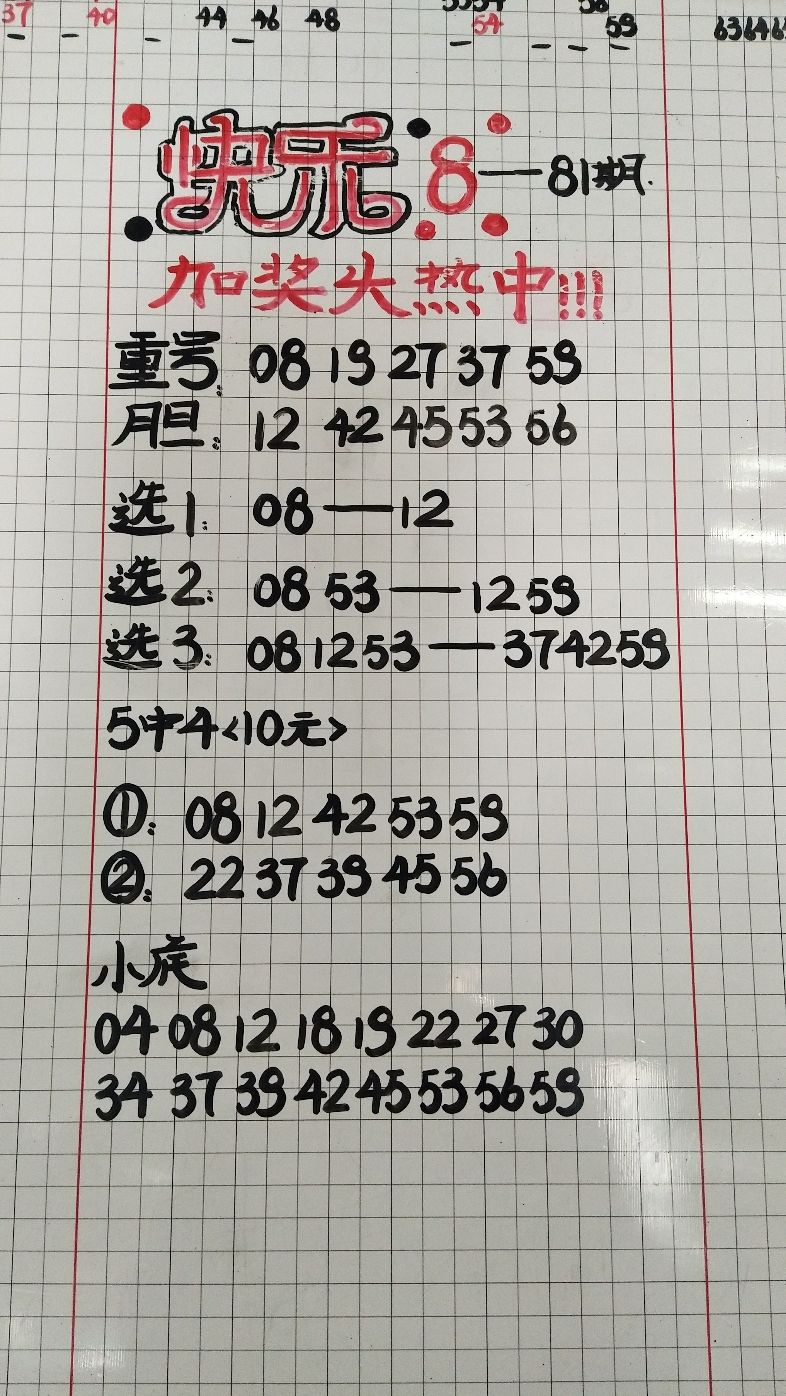 37 40 44 46 48 54 59 636465
快乐8—81期.
加奖火热中!!!
重号: 08 19 27 37 59
胆: 12 42 45 53 56
选1: 08—12
选2: 08 53—12 59
选3: 08 12 53—37 42 59
5中4<10元>
①: 08 12 42 53 59
②: 22 37 39 45 56
小底
04 08 12 18 19 22 27 30
34 37 39 42 45 53 56 59